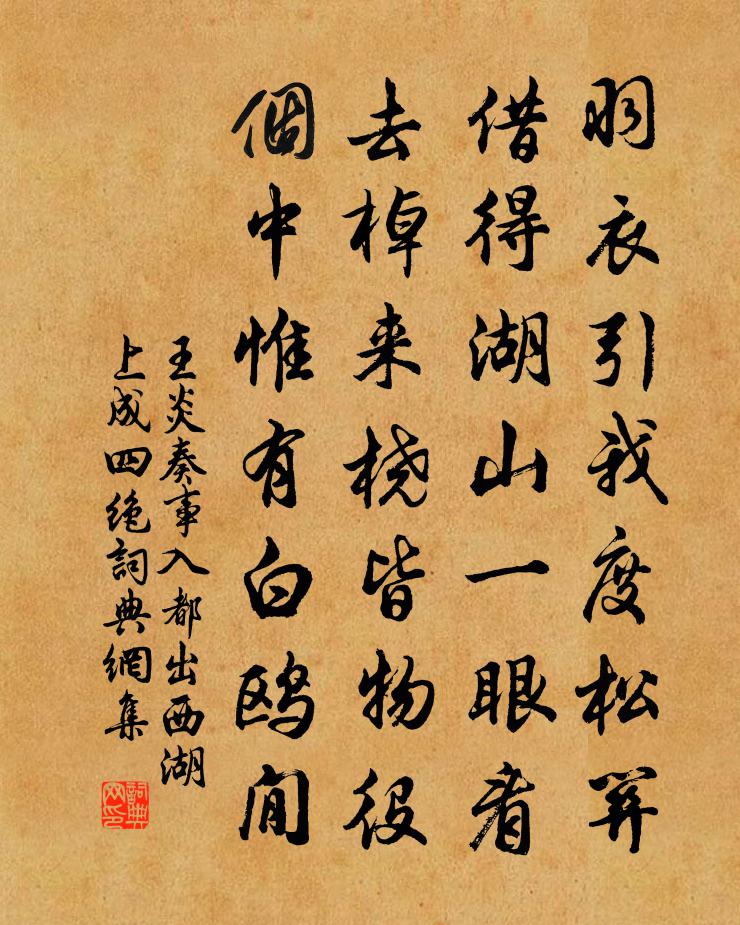 羽衣引我度松關
借得湖山一眼看
去棹来橈皆物役
個中惟有白鷗閒
王炎奏事入都出西湖
上成四绝詞典網集
詞典
网印